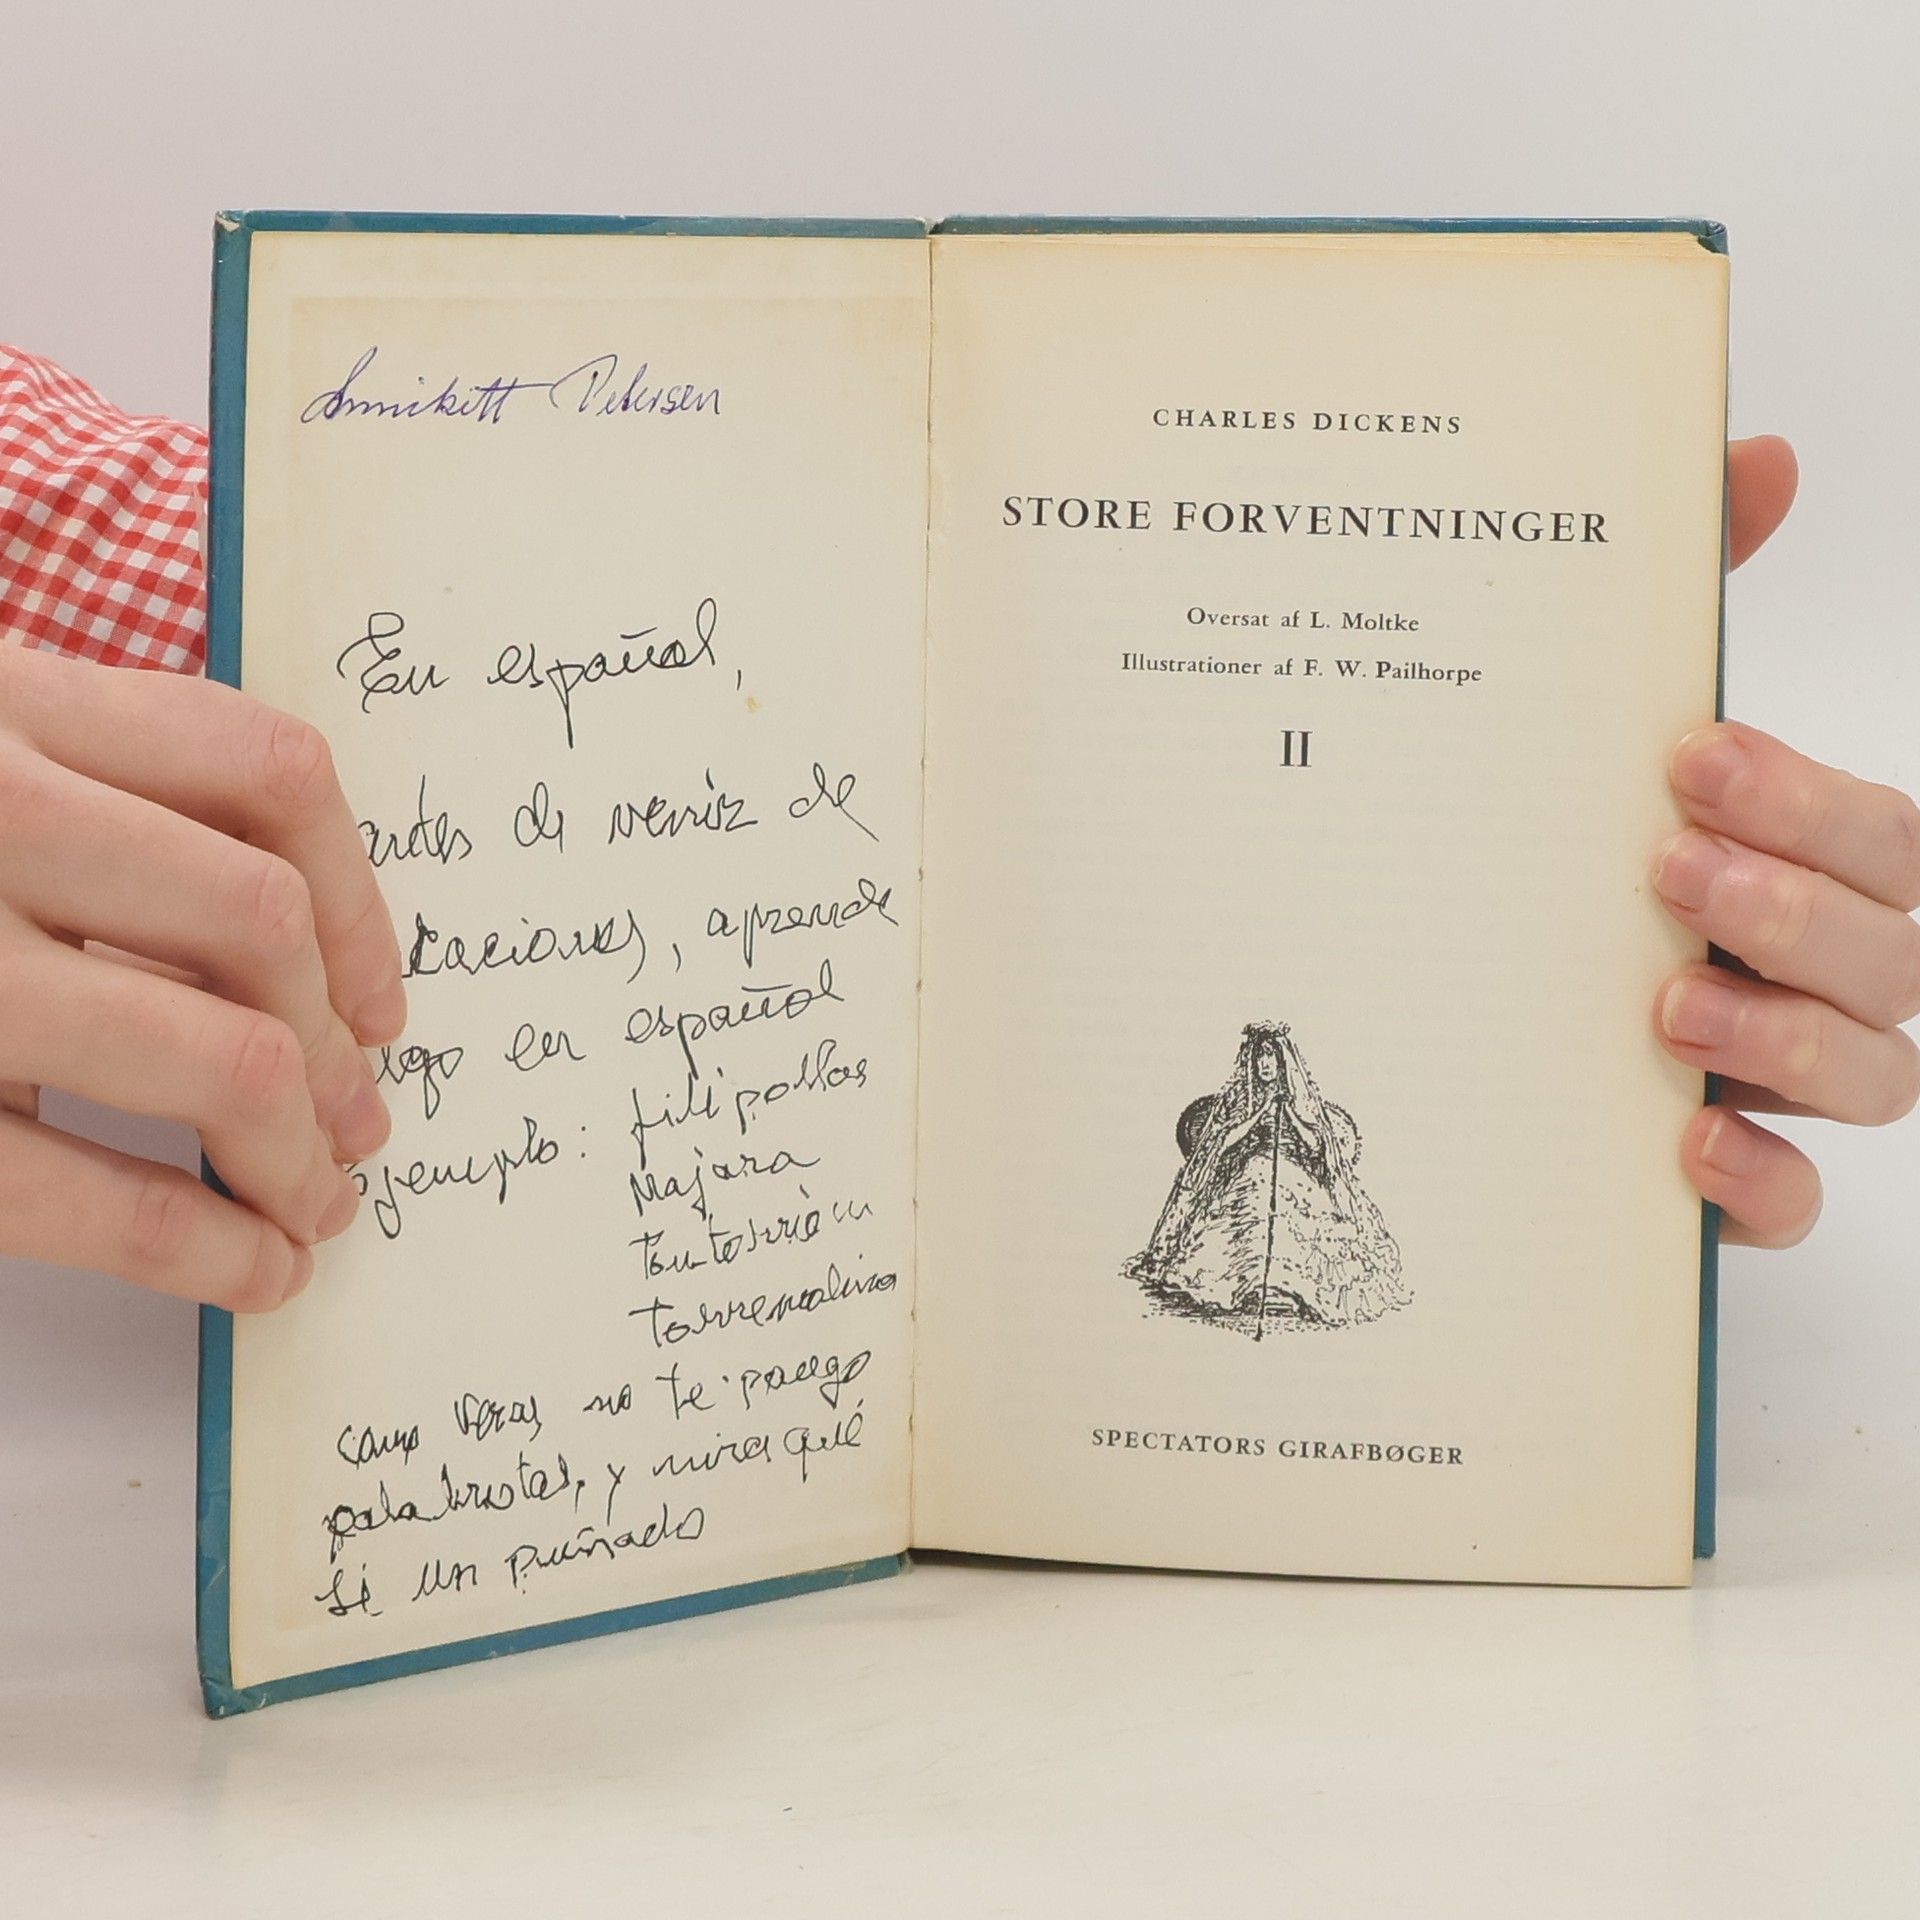 Annikitt Petersen
En español,
antes de venir de
caciones, aprende
algo en español
ejemplo: filipollas
Majara
tontorrión
torremolino
como veras no te pongo
palabrotas, y mira que
sé un puñado
CHARLES DICKENS
STORE FORVENTNINGER
Oversat af L. Moltke
Illustrationer af F. W. Pailhorpe
II
SPECTATORS GIRAFBØGER